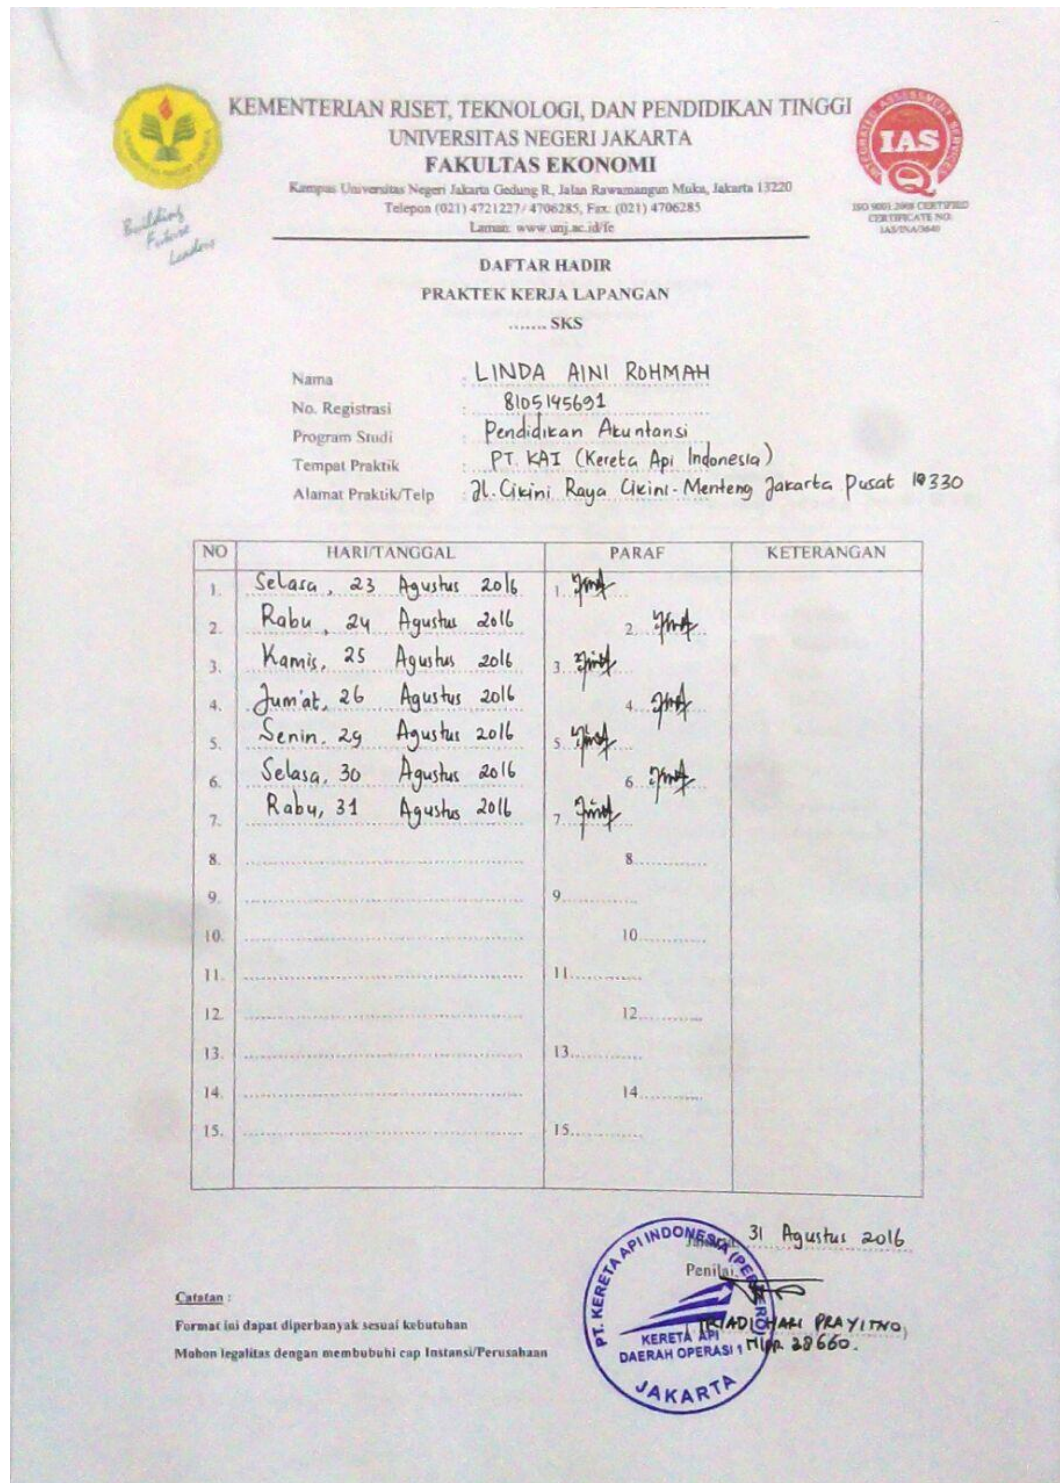 KEMENTERIAN RISET, TEKNOLOGI, DAN PENDIDIKAN TINGGI
UNIVERSITAS NEGERI JAKARTA
FAKULTAS EKONOMI
Kampus Universitas Negeri Jakarta Gedung R, Jalan Rawamangun Muka, Jakarta 13220
Telepon (021) 4721227/ 4706285, Fax: (021) 4706285
Laman: www.unj.ac.id/fe
Building
Future
Leaders
INTEGRATED ASSESSMENT SERVICES
IAS
Q
ISO 9001:2008 CERTIFIED
CERTIFICATE NO:
DAFTAR HADIR
PRAKTEK KERJA LAPANGAN
....... SKS
Nama : LINDA AINI ROHMAH
No. Registrasi : 8105145691
Program Studi : Pendidikan Akuntansi
Tempat Praktik : PT. KAI (Kereta Api Indonesia)
Alamat Praktik/Telp : Jl. Cikini Raya Cikini-Menteng Jakarta Pusat 10330
NO HARI/TANGGAL PARAF KETERANGAN
1. Selasa, 23 Agustus 2016 1.
2. Rabu, 24 Agustus 2016 2.
3. Kamis, 25 Agustus 2016 3.
4. Jum'at, 26 Agustus 2016 4.
5. Senin, 29 Agustus 2016 5.
6. Selasa, 30 Agustus 2016 6.
7. Rabu, 31 Agustus 2016 7.
8. 8.
9. 9.
10. 10.
11. 11.
12. 12.
13. 13.
14. 14.
15. 15.
31 Agustus 2016
Penilai,
HARI PRAYITNO
28660.
PT. KERETA API INDONESIA (PERSERO)
KERETA API
DAERAH OPERASI 1
JAKARTA
Catatan :
Format ini dapat diperbanyak sesuai kebutuhan
Mohon legalitas dengan membubuhi cap Instansi/Perusahaan